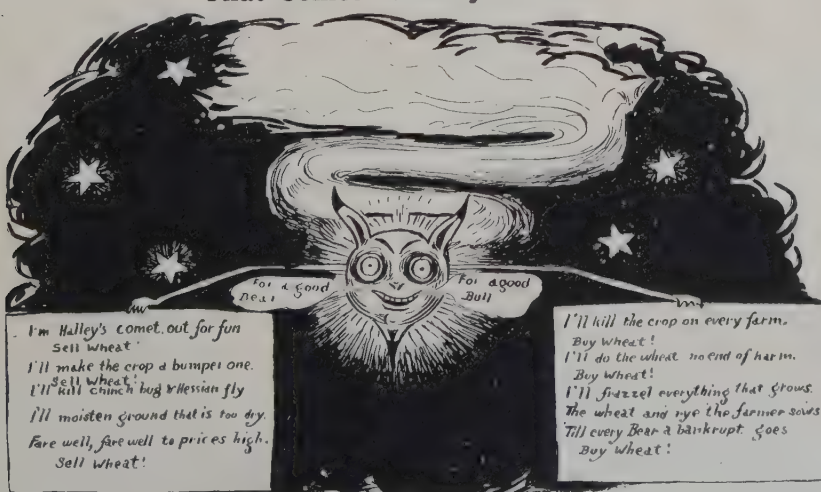 For a good
Bear
For a good
Bull
I'm Halley's comet, out for fun
Sell Wheat
I'll make the crop a bumper one.
Sell Wheat!
I'll kill chinch bug & Hessian fly
I'll moisten ground that is too dry.
Fare well, fare well to prices high.
Sell Wheat!
I'll kill the crop on every farm.
Buy Wheat!
I'll do the wheat no end of harm.
Buy Wheat!
I'll frazzel everything that grows.
The wheat and rye the farmer sows
Till every Bear a bankrupt goes
Buy Wheat!